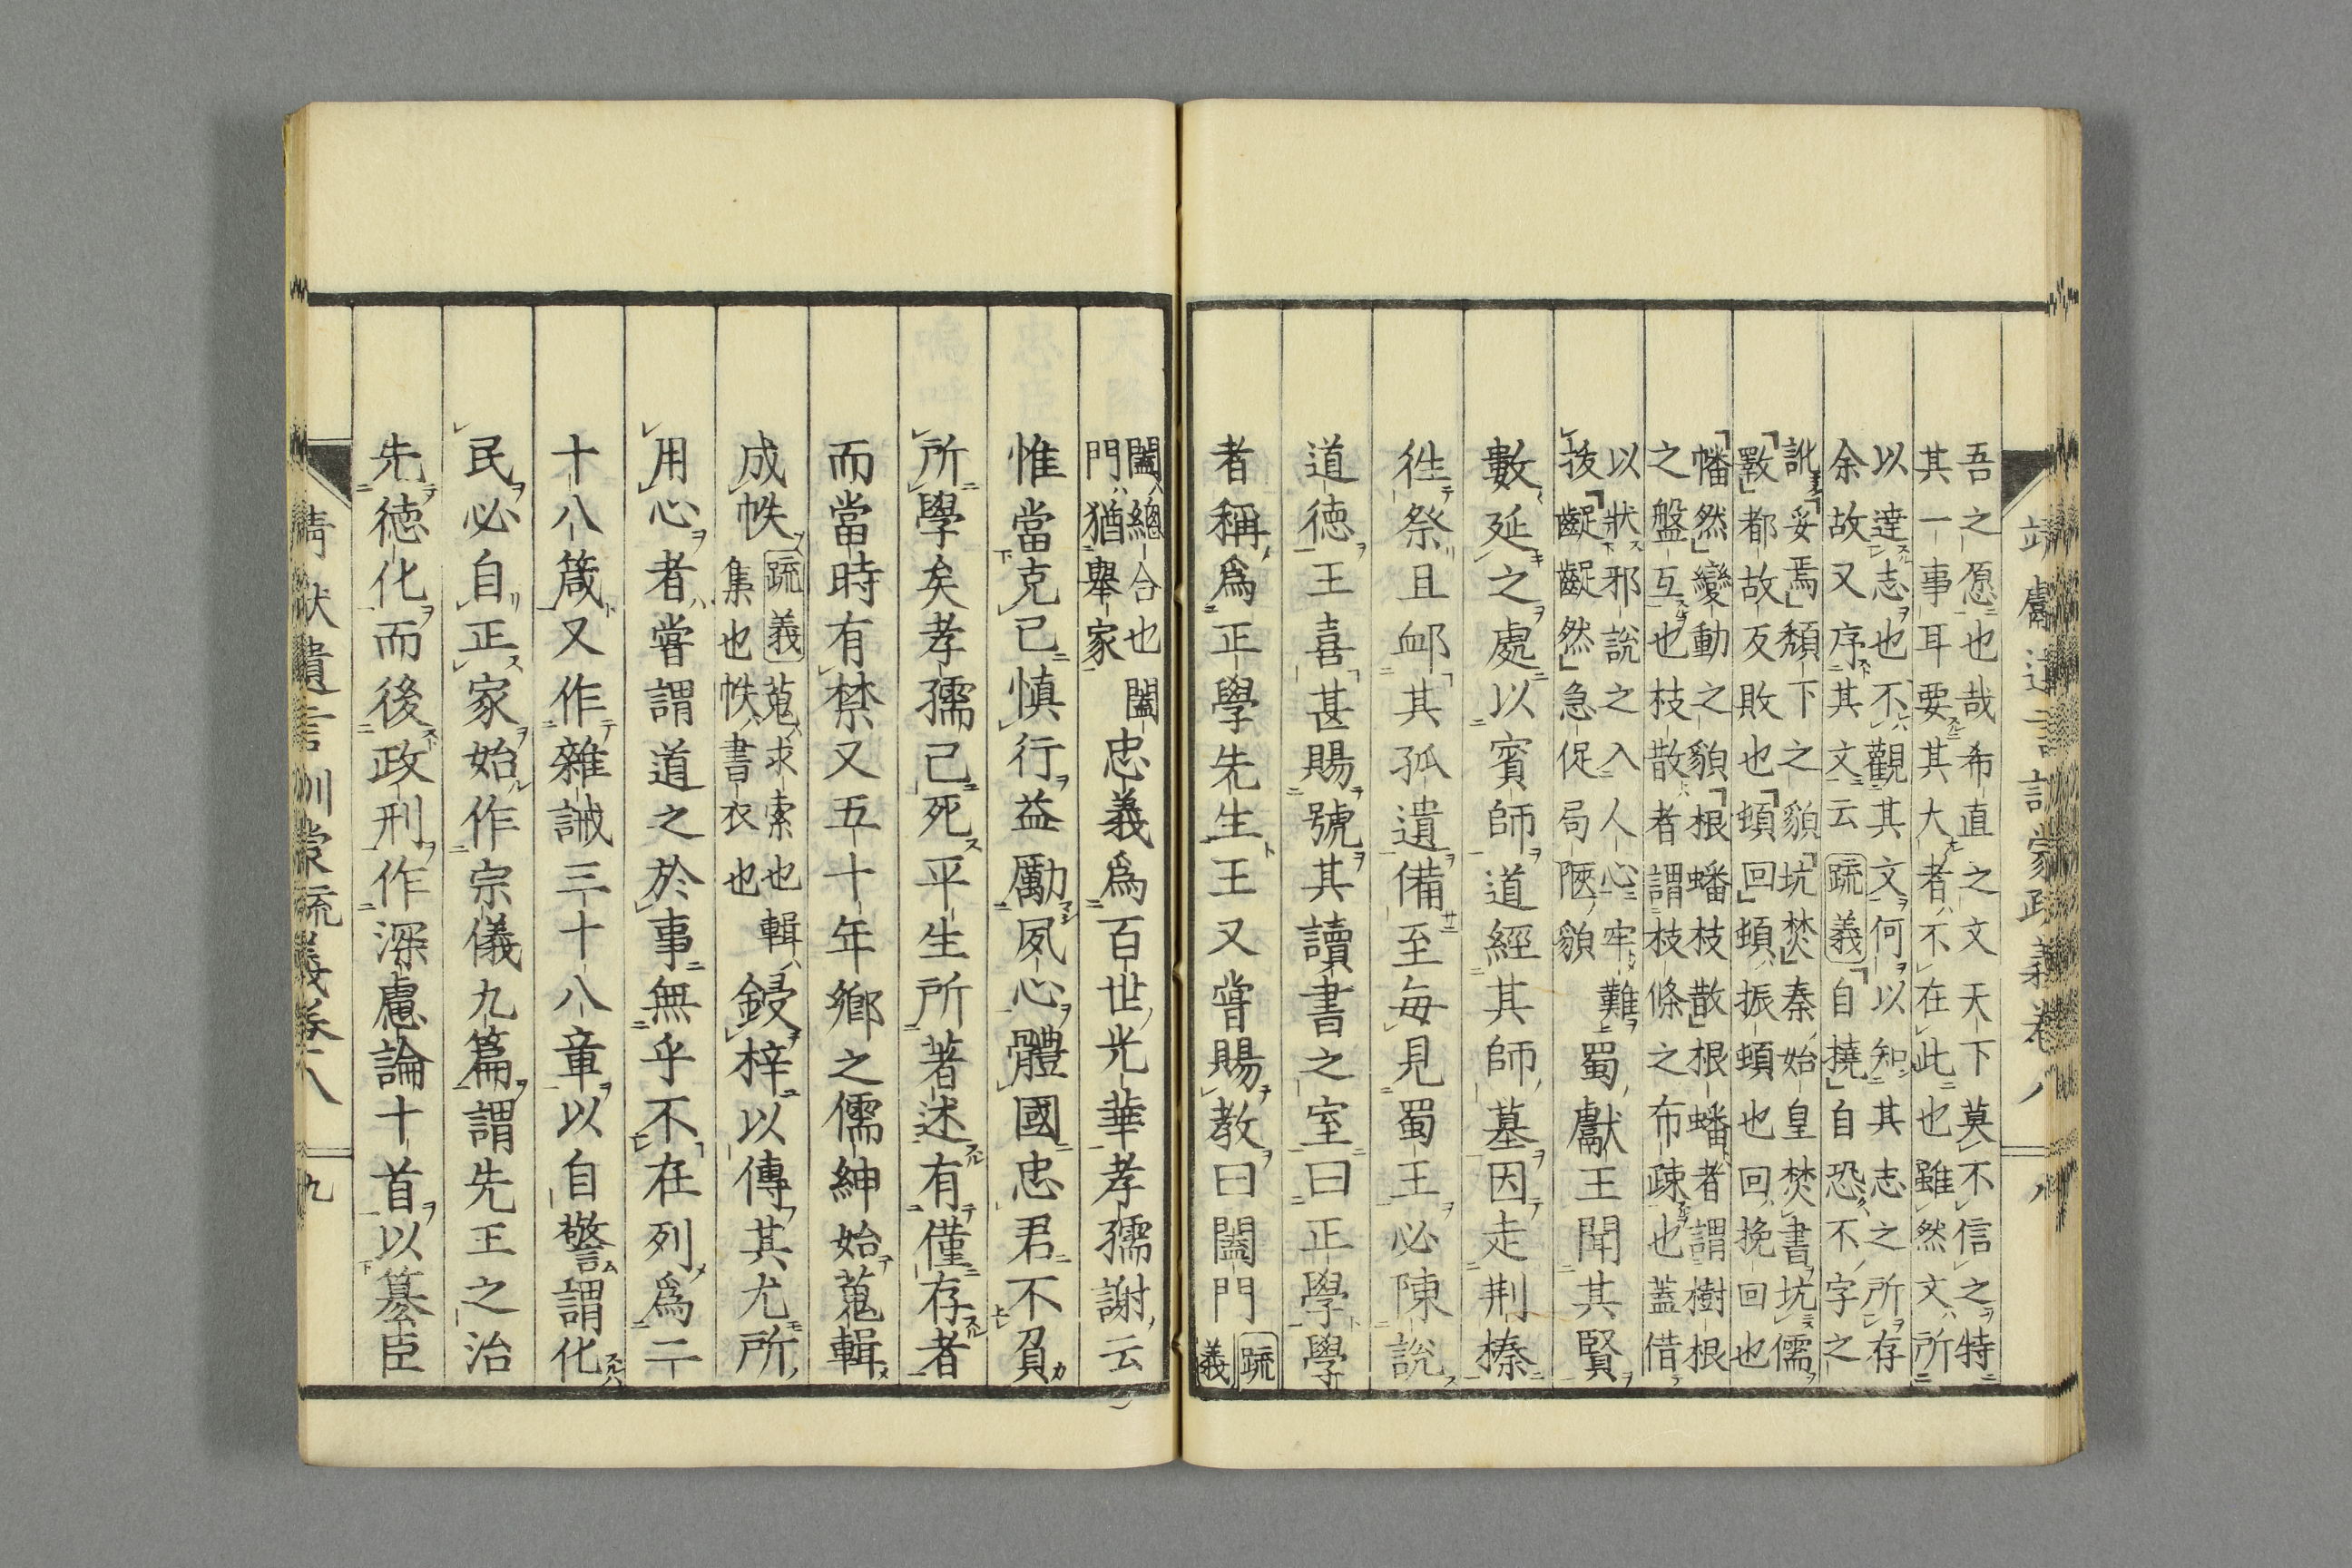 吾之愿也哉希直之文天下莫不信之特
其一事耳要其大者不在此也雖然文所
以達志也不觀其文何以知其志之所存
余故又序其文云疏義自撓自恐不字之
訛妥焉頽下之貌坑焚秦始皇焚書坑儒
斁都故反敗也頓回頓振頓也回挽回也
幡然變動之貌根蟠枝散根蟠者謂樹根
之盤互也枝散者謂枝條之布疎也蓋借
以狀邪說之入人心牢難
拔齪齪然急促局陿貌
蜀獻王聞其賢
數延之處以賓師道經其師墓因走荆榛
徃祭且卹其孤遺備至毎見蜀王必陳說
道德王喜甚賜號其讀書之室曰正學學
者稱爲正學先生王又嘗賜教曰闔門疏義
闔總合也闔
門猶舉家
忠義爲百世光華孝孺謝云
惟當克己慎行益勵夙心體國忠君不負
所學矣孝孺已死平生所著述有僅存者
而當時有禁又五十年鄉之儒紳始蒐輯
成帙疏義蒐求索也輯
集也帙書衣也
鋟梓以傳其尤所
用心者嘗謂道之於事無乎不在列爲二
十八箴又作雜誡三十八章以自警謂化
民必自正家始作宗儀九篇謂先王之治
先德化而後政刑作深慮論十首以纂臣
靖獻遺言訓蒙疏義卷八
九